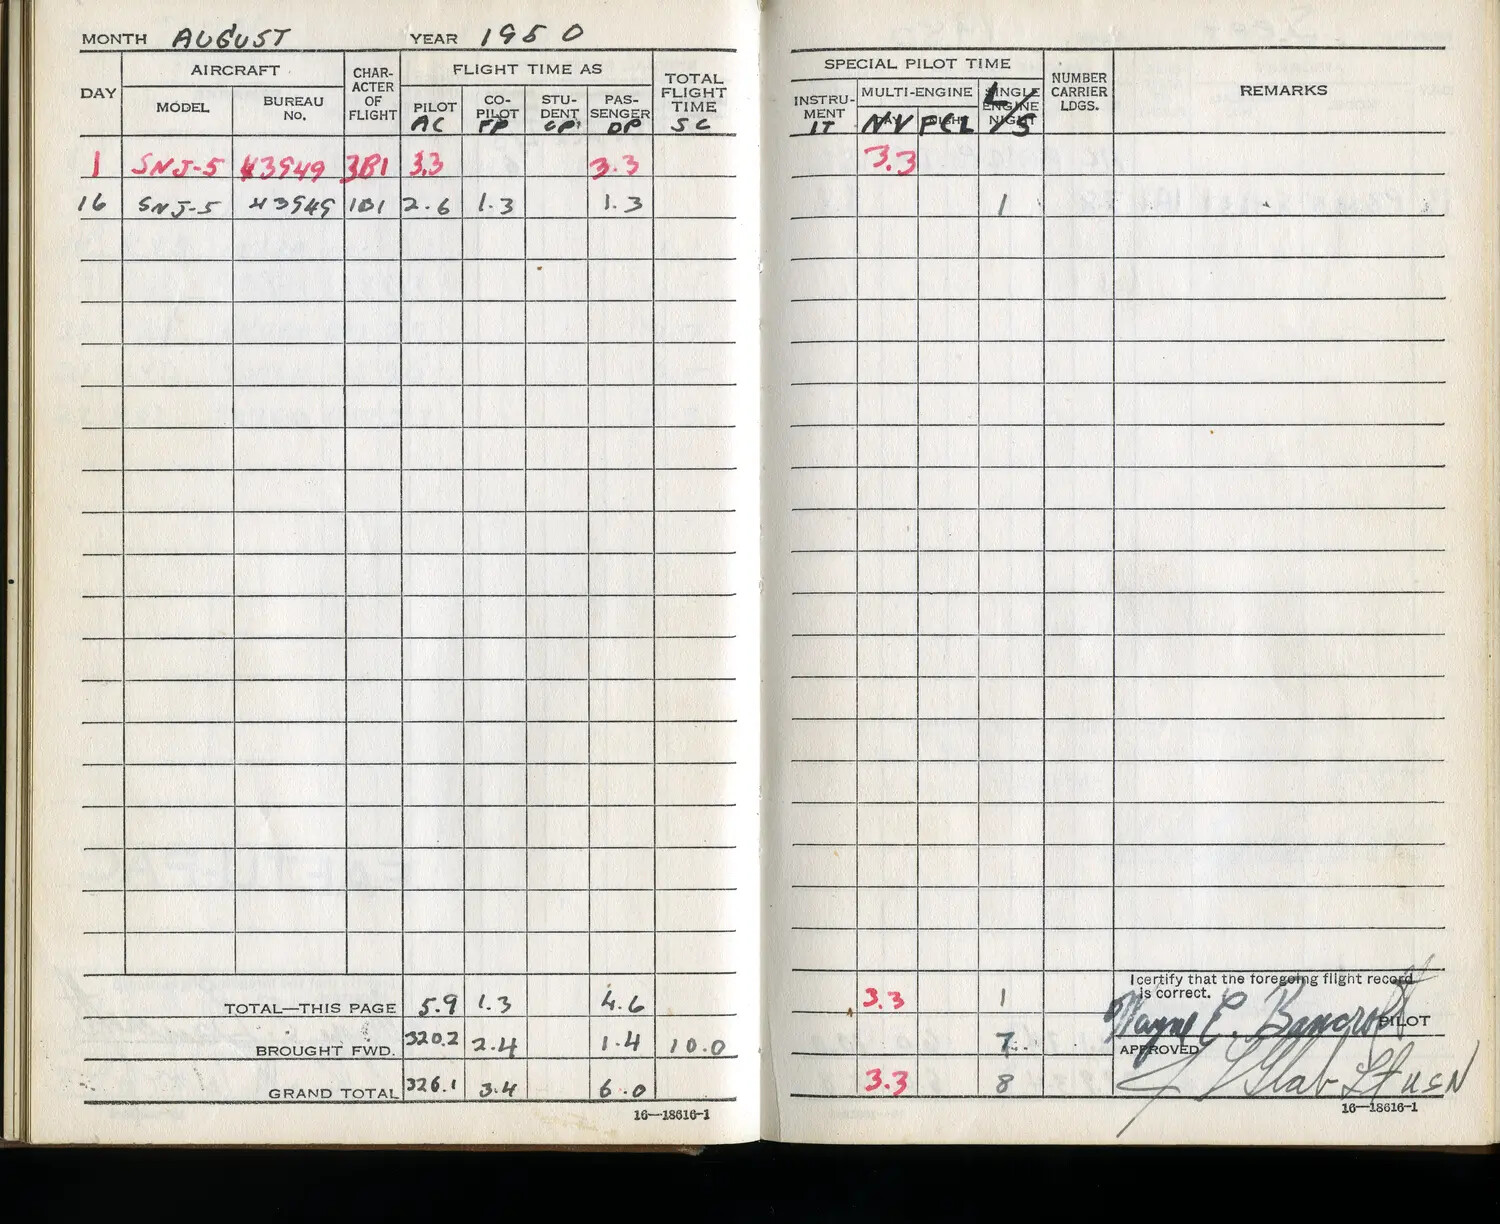 MONTH AUGUST YEAR 1950
DAY AIRCRAFT CHAR-ACTER OF FLIGHT FLIGHT TIME AS TOTAL FLIGHT TIME
MODEL BUREAU NO. PILOT CO-PILOT STU-DENT PAS-SENGER
AC FP CP DP SC
1 SNJ-5 43949 3B1 3.3 3.3
16 SNJ-5 43949 1B1 2.6 1.3 1.3
TOTAL—THIS PAGE 5.9 1.3 4.6
BROUGHT FWD. 320.2 2.4 1.4 10.0
GRAND TOTAL 326.1 3.4 6.0
16—18616-1
SPECIAL PILOT TIME NUMBER CARRIER LDGS. REMARKS
INSTRU-MENT MULTI-ENGINE SINGLE ENGINE NIGHT
IT NV FCL L/S
3.3
1
3.3 1
7
3.3 8
I certify that the foregoing flight record
is correct.
Wayne E. Bancroft PILOT
APPROVED
Lt USN
16—18616-1